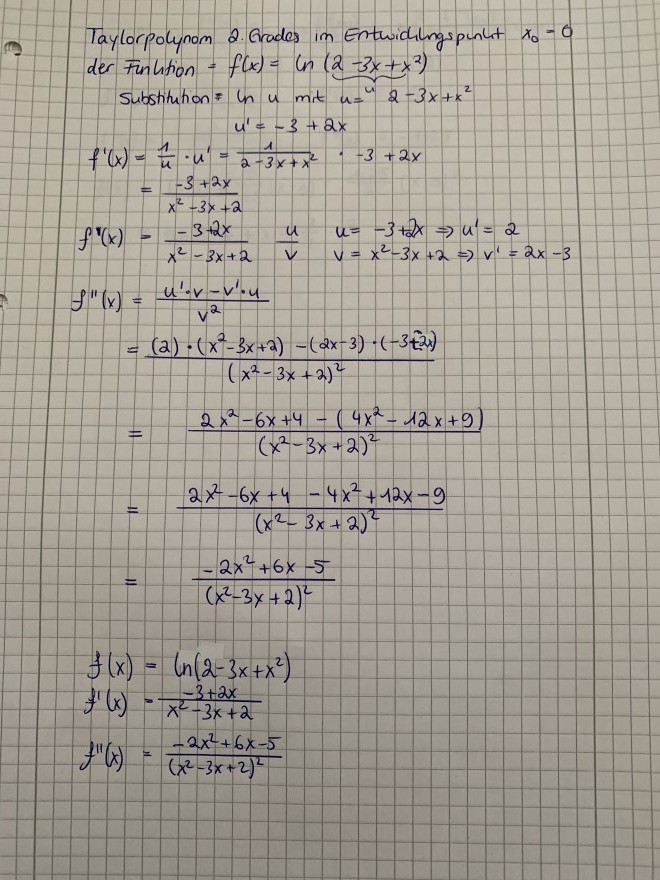 Taylorpolynom 2. Grades im Entwicklungspunkt x₀ = 0
der Funktion = f(x) = ln (2 - 3x + x²)
Substitution = ln u mit u = 2 - 3x + x²
u
u' = -3 + 2x
f'(x) = 1/u · u' = 1/(2 - 3x + x²) · -3 + 2x
= (-3 + 2x)/(x² - 3x + 2)
f'(x) = (-3 + 2x)/(x² - 3x + 2) u/v u = -3 + 2x ⇒ u' = 2
v = x² - 3x + 2 ⇒ v' = 2x - 3
f''(x) = (u'·v - v'·u)/v²
= ((2)·(x² - 3x + 2) - (2x - 3)·(-3 + 2x))/(x² - 3x + 2)²
= (2x² - 6x + 4 - (4x² - 12x + 9))/(x² - 3x + 2)²
= (2x² - 6x + 4 - 4x² + 12x - 9)/(x² - 3x + 2)²
= (-2x² + 6x - 5)/(x² - 3x + 2)²
f(x) = ln(2 - 3x + x²)
f'(x) = (-3 + 2x)/(x² - 3x + 2)
f''(x) = (-2x² + 6x - 5)/(x² - 3x + 2)²